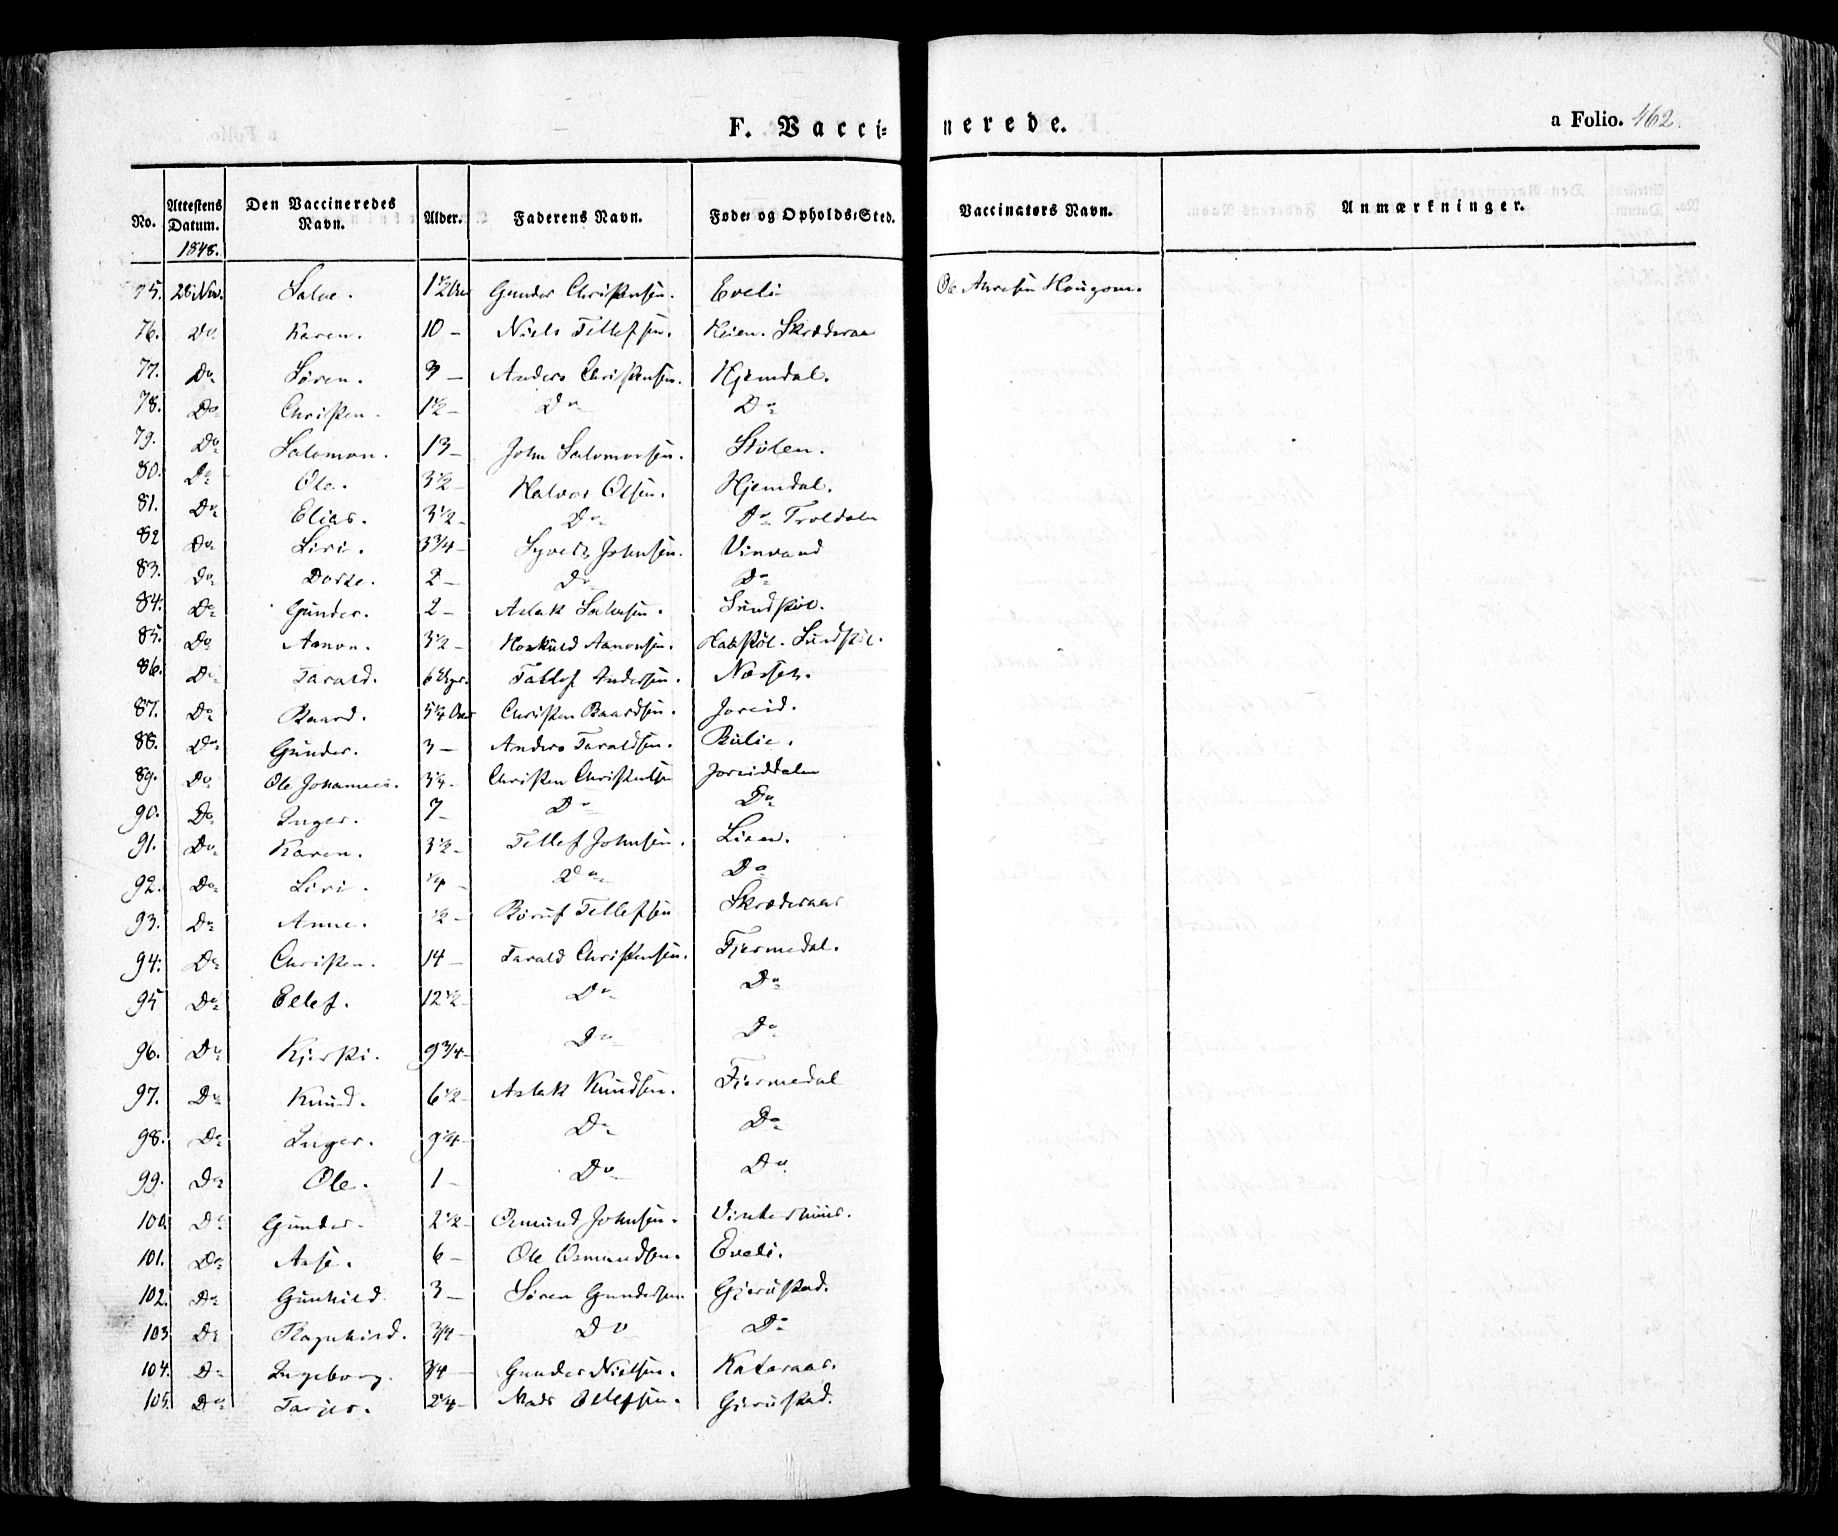 F. Vaccinerede. a Folio. 462.
No. Attestens Datum. Den Vaccineredes Navn. Alder. Faderens Navn. Føde- og Opholds-Sted. Vaccinators Navn. Anmærkninger.
1848.
75. 28 Nov. Salve. 1 1/2 Aar Gunder Christensen. Eveli Ole Hougom.
76. Do Karen. 10 — Niels Tellefsen. Skræderaa
77. Do Søren. 3 — Anders Christensen. Hjemdal.
78. Do Christen. 1 1/2 — Do Do
79. Do Salomon. 13 — John Salomonsen. Stølen.
80. Do Ole. 3 1/2 — Halvor Olsen. Hjemdal.
81. Do Elias. 3 1/2 — Do Do Troldalen
82 Do Siri. 3 3/4 — Syvert Johnsen. Vinvand
83. Do Dorte. 2 — Do Do
84. Do Gunder. 2 — Aslak Salvesen. Sundstøl.
85. Do Aanon. 3 1/2 — Hoskuld Aanonsen. Sundstøl.
86. Do Tarald. 6 Uger. Tellef Andersen. Næsset.
87. Do Baard. 5 1/4 Aar Christen Baardsen. Joreid.
88. Do Gunder. 3 — Anders Taraldsen. Bulie.
89. Do Ole Johannes. 3 1/4 — Christen Christensen Joreiddalen
90. Do Inger. 7 — Do Do
91. Do Karen. 3 1/2 — Tellef Johnsen. Lien.
92. Do Siri. 1/4 — Do Do
93. Do Anne. 1/2 — Børuf Tellefsen Skræderaas
94. Do Christen. 14 — Tarald Christensen. Fjermedal.
95 Do Ellef. 12 1/2 — Do Do
96. Do Kjersti. 9 3/4 — Do Do
97. Do Knud. 6 1/2 — Aslak Knudsen. Fjermedal
98. Do Inger. 9 1/4 — Do Do
99. Do Ole. 1 — Do Do
100. Do Gunder. 2 1/2 — Osmund Johnsen. Vinterhuus.
101. Do Aase. 6 — Ole Osmundsen. Eveli.
102. Do Gunhild 3 — Søren Gundersen Gjerustad.
103 Do Ragnhild. 3/4 — Do Do
104. Do Ingeborg. 3/4 — Gunder Nielsen. Kateraas.
105. Do Tarjer. 2 1/4 — Mads Ellefsen. Gjerustad.